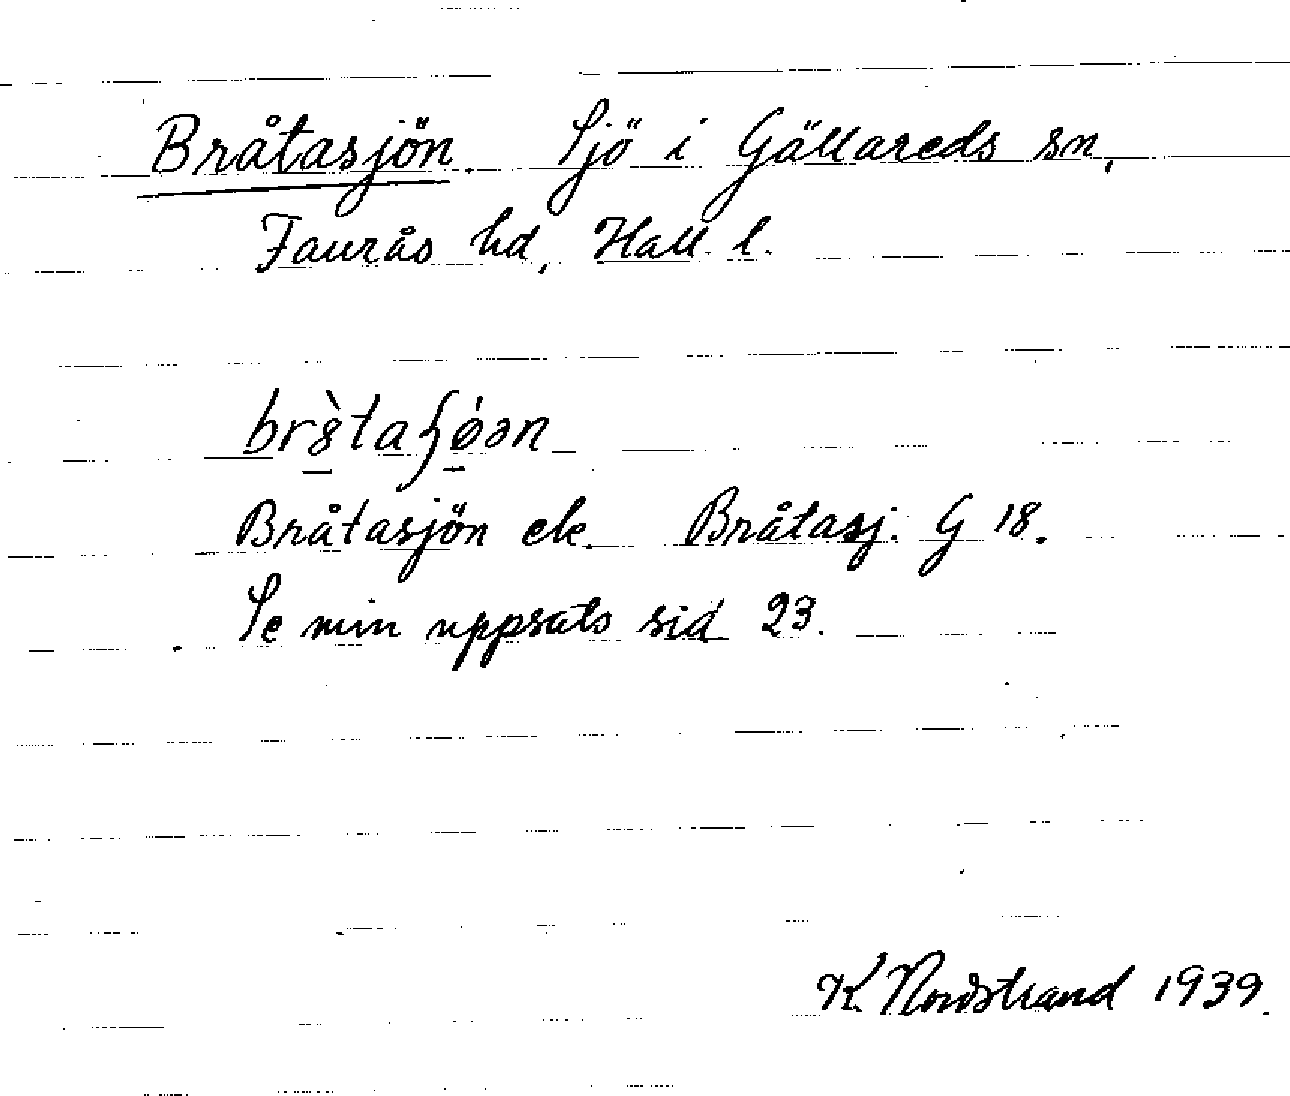 Bråtasjön. Sjö i Gällareds sn,
Faurås hd, Hall. l.
Bråtasjön ek. Bråtasj. G 18.
Se min uppsats sid 23.
K Nordstrand 1939.